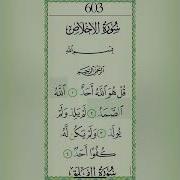 603
سُورَةُ الْإِخْلَاصِ
بِسْمِ اللَّهِ
الرَّحْمَٰنِ الرَّحِيمِ
قُلْ هُوَ اللَّهُ أَحَدٌ ١ اللَّهُ
الصَّمَدُ ٢ لَمْ يَلِدْ وَلَمْ
يُولَدْ ٣ وَلَمْ يَكُن لَّهُ
كُفُوًا أَحَدٌ ٤
سُورَةُ الْفَلَقِ